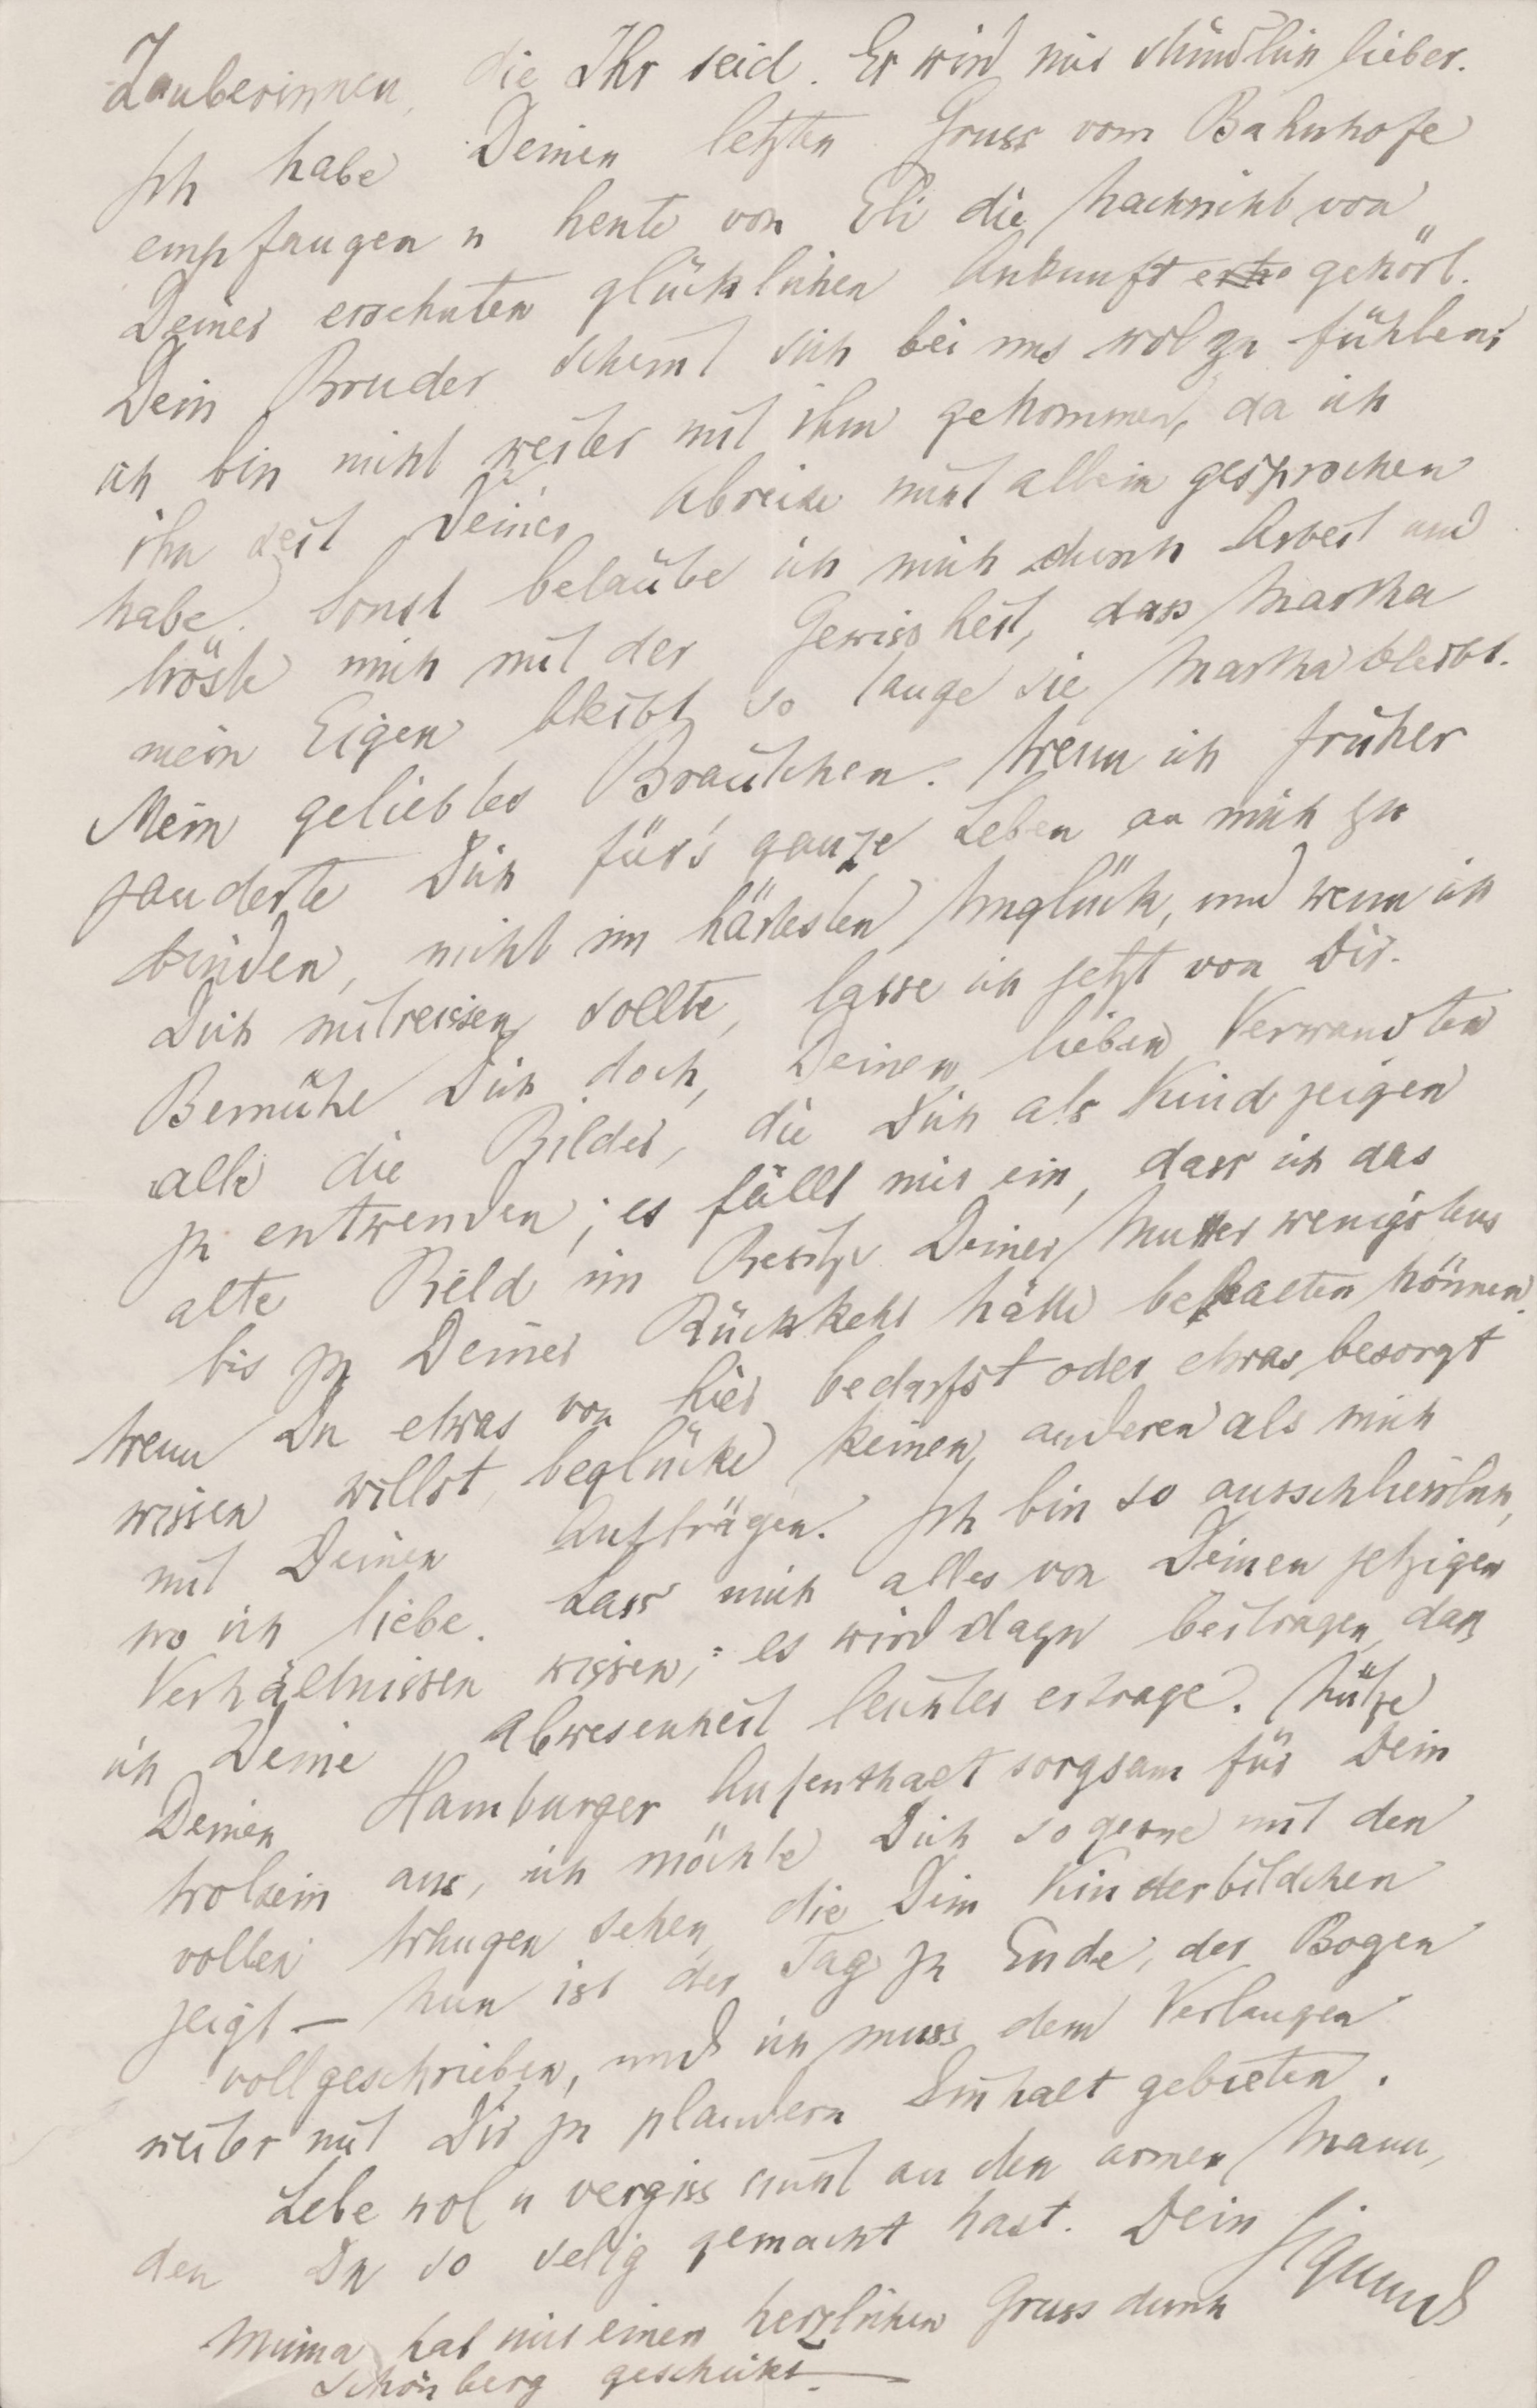 Zauberinnen, die Ihr seid. Er wird mir stündlich lieber.
Ich habe Deinen letzten Gruss vom Bahnhofe
empfangen u heute von Eli die Nachricht von
Deiner ersehnten glücklichen Ankunft gehört.
Dein Bruder scheint sich bei uns wol zu fühlen;
ich bin nicht weiter mit ihm gekommen, da ich
ihn seit Deiner Abreise nicht allein gesprochen
habe. Sonst betäube ich mich durch Arbeit und
tröste mich mit der Gewissheit, dass Martha
mein Eigen bleibt so lange sie Martha bleibt.
Mein geliebtes Bräutchen. Wenn ich früher
zauderte Dich für's ganze Leben an mich zu
binden, nicht im härtesten Unglück, und wenn ich
Dich mitreissen sollte, lasse ich jetzt von Dir.
Bemühe Dich doch, Deinen lieben Verwandten
alle die Bilder, die Dich als Kind zeigen
zu entwenden; es fällt mir ein, dass ich das
alte Bild im Besitze Deiner Mutter wenigstens
bis zu Deiner Rückkehr hätte behalten können.
Wenn Du etwas von hier bedarfst oder etwas besorgt
wissen willst, beglücke keinen anderen als mich
mit Deinen Aufträgen. Ich bin so ausschliesslich,
wo ich liebe. Lass mich alles von Deinen jetzigen
Verhältnissen wissen; es wird dazu beitragen, dass
ich Deine Abwesenheit leichter ertrage. Nütze
Deinen Hamburger Aufenthalt sorgsam für Dein
Wolsein aus, ich möchte Dich so gerne mit den
vollen Wangen sehen, die Dein Kinderbildchen
zeigt – Nun ist der Tag zu Ende, der Bogen
vollgeschrieben, und ich muss dem Verlangen
weiter mit Dir zu plaudern Einhalt gebieten.
Lebe wol u vergiss nicht an den armen Mann,
den Du so selig gemacht hast. Dein Sigmund
Minna hat mir einen herzlichen Gruss durch
Schönberg geschickt. —